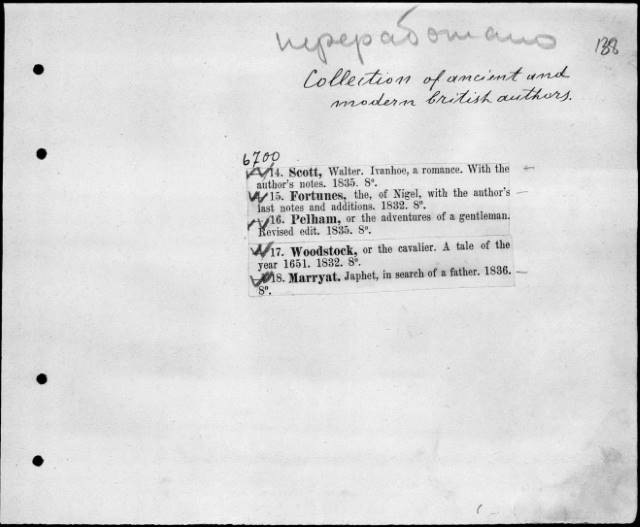 переработано 188
Collection of ancient and
modern british authors.
6700
14. Scott, Walter. Ivanhoe, a romance. With the
author's notes. 1835. 8°.
15. Fortunes, the, of Nigel, with the author's
last notes and additions. 1832. 8°.
16. Pelham, or the adventures of a gentleman.
Revised edit. 1835. 8°.
17. Woodstock, or the cavalier. A tale of the
year 1651. 1832. 8°.
18. Marryat. Japhet, in search of a father. 1836.
8°.